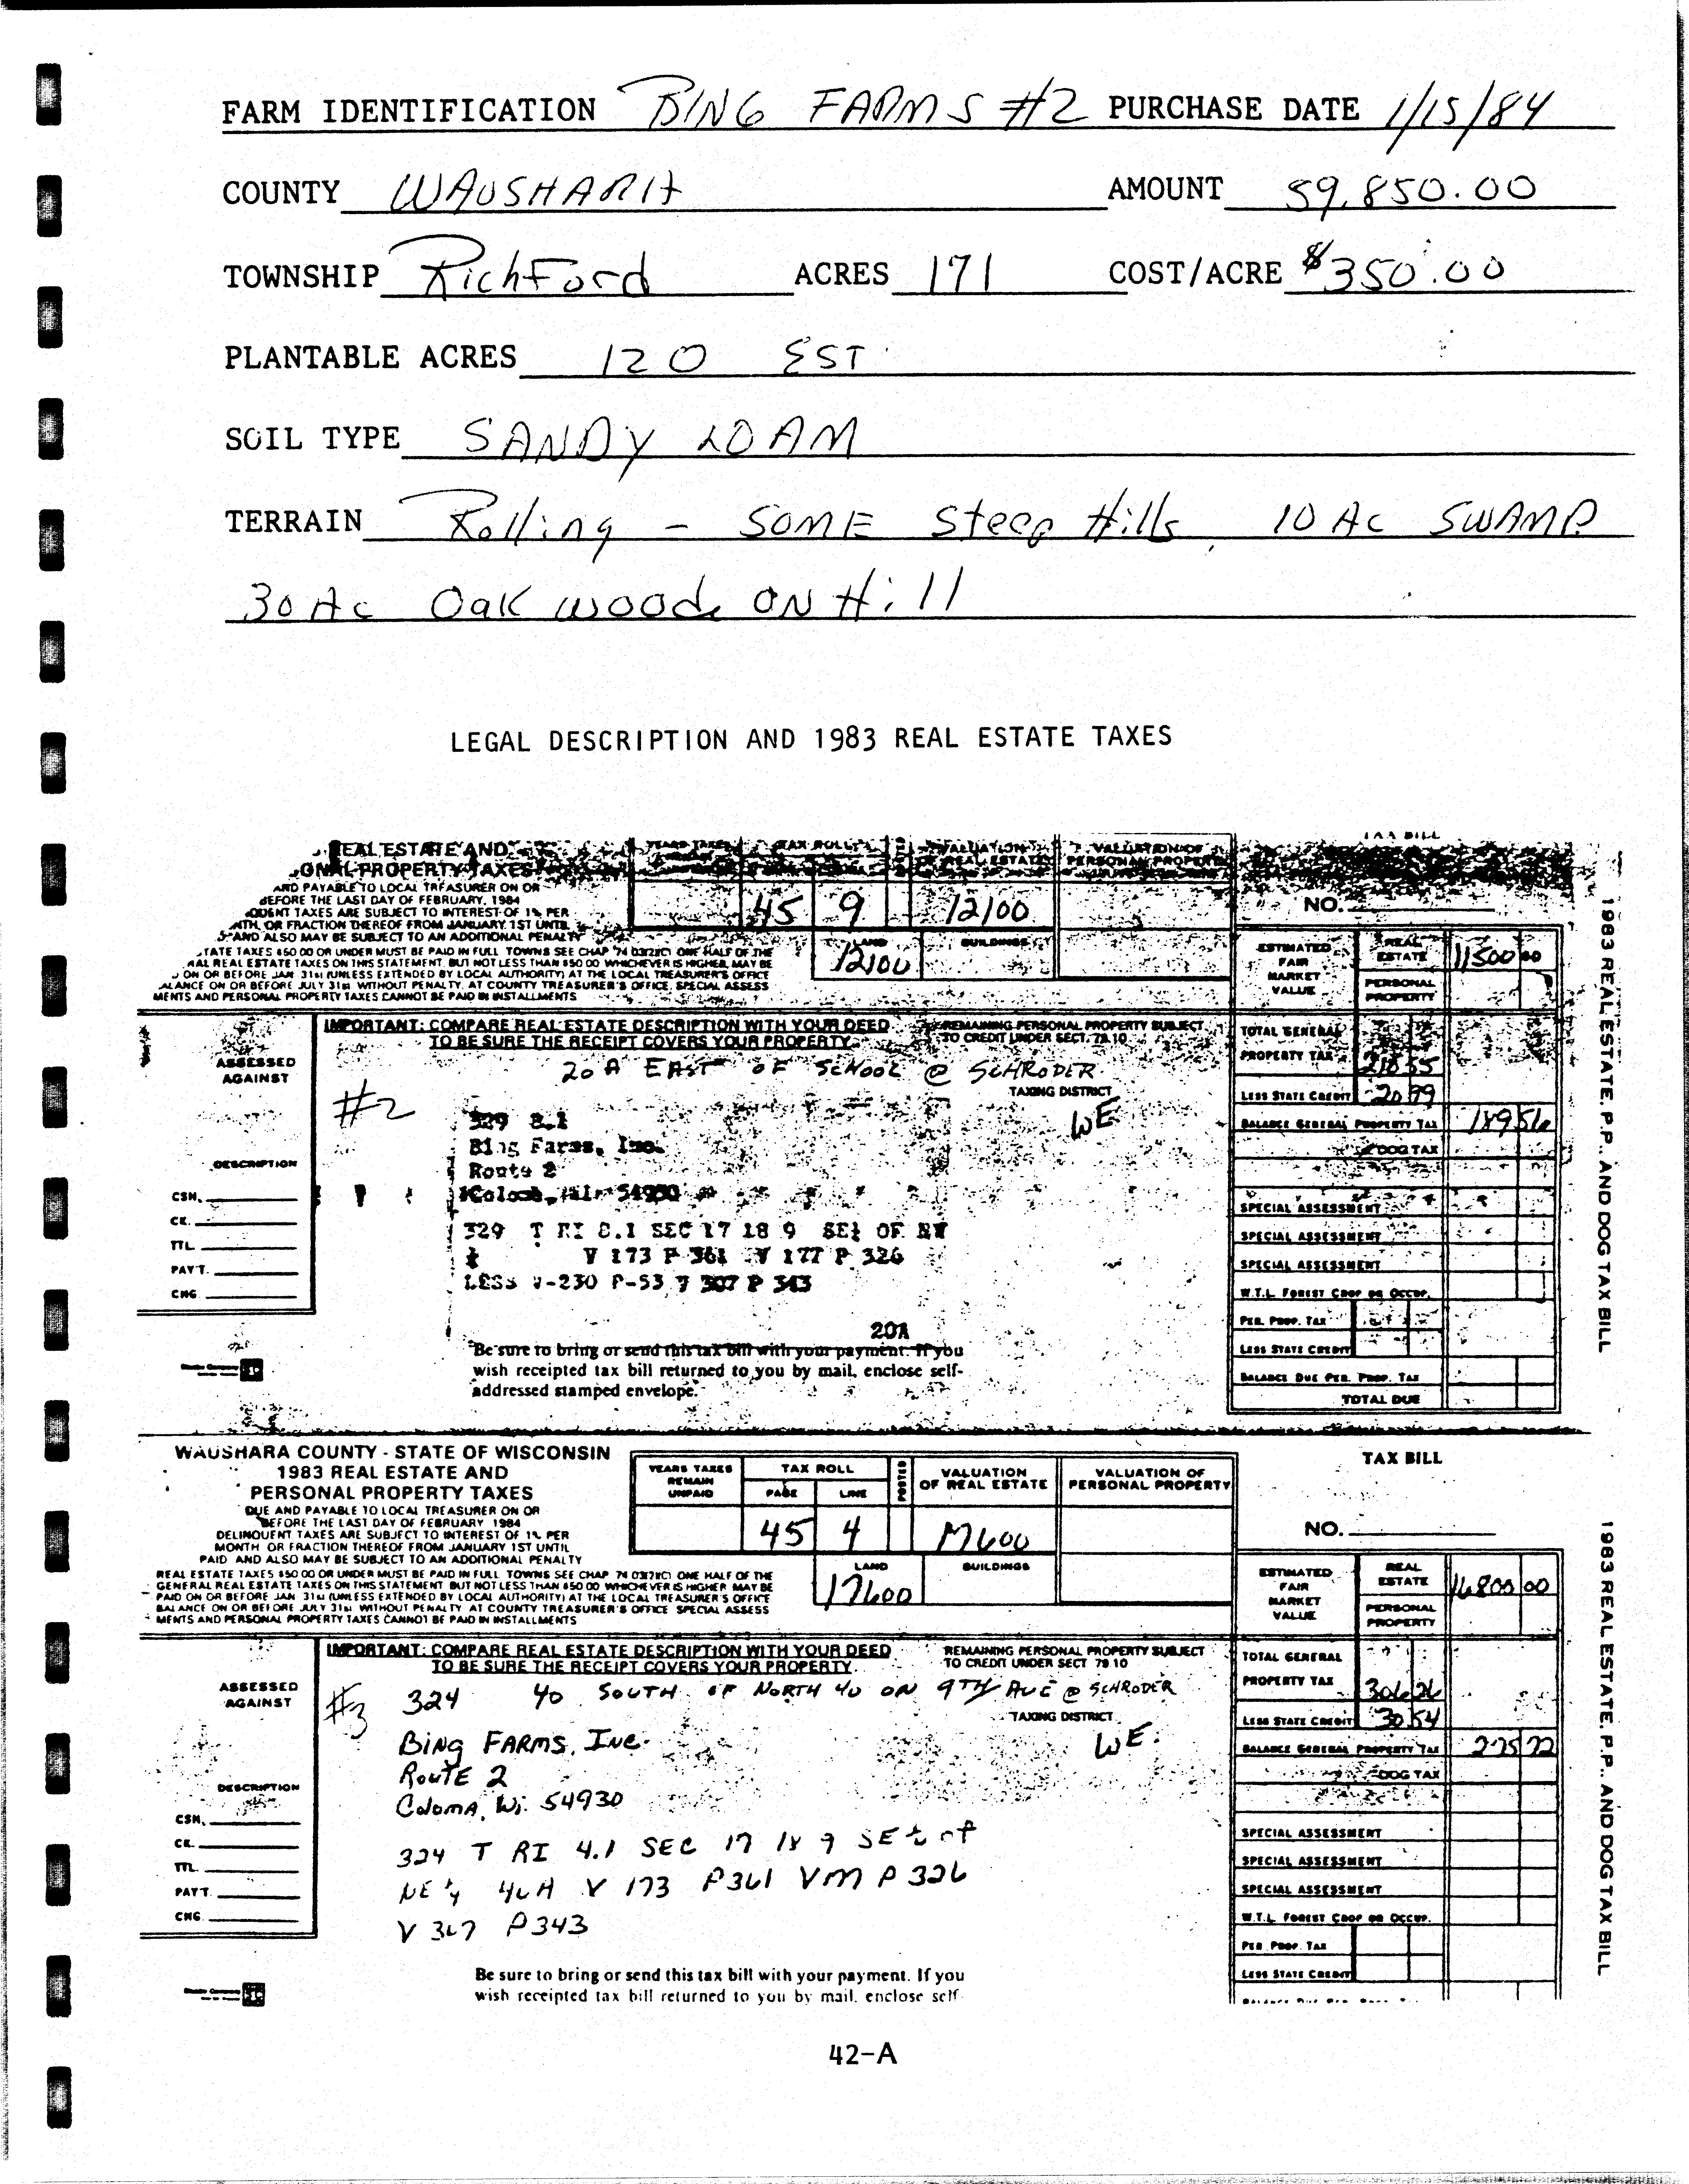 FARM IDENTIFICATION BING FARMS #2 PURCHASE DATE 1/15/84
COUNTY WAUSHARA AMOUNT 59,850.00
TOWNSHIP RichFord ACRES 171 COST/ACRE $350.00
PLANTABLE ACRES 120 EST
SOIL TYPE SANDY LOAM
TERRAIN Rolling - SOME Steep Hills, 10 AC SWAMP
30 Ac Oak woods ON Hill
LEGAL DESCRIPTION AND 1983 REAL ESTATE TAXES
REAL ESTATE AND
PROPERTY TAXES
AND PAYABLE TO LOCAL TREASURER ON OR
BEFORE THE LAST DAY OF FEBRUARY, 1984
TAXES ARE SUBJECT TO INTEREST OF 1% PER
OR FRACTION THEREOF FROM JANUARY 1ST UNTIL
AND ALSO MAY BE SUBJECT TO AN ADDITIONAL PENALTY
TAX ROLL
VALUATION OF REAL ESTATE
VALUATION OF PERSONAL PROPERTY
TAX BILL
45 9 12100
LAND 12100 BUILDINGS
NO.
ESTIMATED FAIR MARKET VALUE
REAL ESTATE 11500 00
PERSONAL PROPERTY
1983 REAL ESTATE, P.P., AND DOG TAX BILL
STATE TAXES $50.00 OR UNDER MUST BE PAID IN FULL. TOWNS SEE CHAP. 74 ONE HALF OF THE
REAL ESTATE TAXES ON THIS STATEMENT, BUT NOT LESS THAN $50.00 WHICHEVER IS HIGHER, MAY BE
ON OR BEFORE JAN. 31st (UNLESS EXTENDED BY LOCAL AUTHORITY) AT THE LOCAL TREASURER'S OFFICE
BALANCE ON OR BEFORE JULY 31st WITHOUT PENALTY, AT COUNTY TREASURER'S OFFICE. SPECIAL ASSESS
MENTS AND PERSONAL PROPERTY TAXES CANNOT BE PAID IN INSTALLMENTS
IMPORTANT: COMPARE REAL ESTATE DESCRIPTION WITH YOUR DEED
TO BE SURE THE RECEIPT COVERS YOUR PROPERTY.
REMAINING PERSONAL PROPERTY SUBJECT
TO CREDIT UNDER SECT. 79.10
ASSESSED AGAINST
20 A EAST OF SCHOOL @ SCHRODER
TAXING DISTRICT
#2
WE
329 8.1
Bing Farms, Inc.
Route 2
Coloma, Wi. 54930
DESCRIPTION
CSH.
CK.
TTL.
PAY'T.
CHG.
329 T RI 8.1 SEC 17 18 9 SE¼ OF NW
¼ V 173 P 361 V 177 P 326
LESS V-230 P-53 V 307 P 343
20A
Be sure to bring or send this tax bill with your payment. If you
wish receipted tax bill returned to you by mail, enclose self-
addressed stamped envelope.
TOTAL GENERAL PROPERTY TAX 210 55
LESS STATE CREDIT 20 99
BALANCE GENERAL PROPERTY TAX 189 56
DOG TAX
SPECIAL ASSESSMENT
SPECIAL ASSESSMENT
SPECIAL ASSESSMENT
W.T.L. FOREST CROP OR OCCUP.
PER. PROP. TAX
LESS STATE CREDIT
BALANCE DUE PER. PROP. TAX
TOTAL DUE
WAUSHARA COUNTY - STATE OF WISCONSIN
1983 REAL ESTATE AND
PERSONAL PROPERTY TAXES
DUE AND PAYABLE TO LOCAL TREASURER ON OR
BEFORE THE LAST DAY OF FEBRUARY 1984
DELINQUENT TAXES ARE SUBJECT TO INTEREST OF 1% PER
MONTH OR FRACTION THEREOF FROM JANUARY 1ST UNTIL
PAID AND ALSO MAY BE SUBJECT TO AN ADDITIONAL PENALTY
YEARS TAXES REMAIN UNPAID
TAX ROLL PAGE LINE
POSTED
VALUATION OF REAL ESTATE
VALUATION OF PERSONAL PROPERTY
TAX BILL
45 4 17600
LAND 17600 BUILDINGS
NO.
ESTIMATED FAIR MARKET VALUE
REAL ESTATE 16800 00
PERSONAL PROPERTY
1983 REAL ESTATE, P.P., AND DOG TAX BILL
REAL ESTATE TAXES $50.00 OR UNDER MUST BE PAID IN FULL TOWNS SEE CHAP ONE HALF OF THE
GENERAL REAL ESTATE TAXES ON THIS STATEMENT BUT NOT LESS THAN $50.00 WHICHEVER IS HIGHER MAY BE
PAID ON OR BEFORE JAN 31st (UNLESS EXTENDED BY LOCAL AUTHORITY) AT THE LOCAL TREASURER'S OFFICE
BALANCE ON OR BEFORE JULY 31st WITHOUT PENALTY AT COUNTY TREASURER'S OFFICE SPECIAL ASSESS
MENTS AND PERSONAL PROPERTY TAXES CANNOT BE PAID IN INSTALLMENTS
IMPORTANT: COMPARE REAL ESTATE DESCRIPTION WITH YOUR DEED
TO BE SURE THE RECEIPT COVERS YOUR PROPERTY.
REMAINING PERSONAL PROPERTY SUBJECT
TO CREDIT UNDER SECT 79 10
ASSESSED AGAINST
#3 324 40 SOUTH OF NORTH 40 ON 9TH AVE @ SCHRODER
TAXING DISTRICT
WE.
BING FARMS, INC.
ROUTE 2
Coloma, Wi. 54930
DESCRIPTION
CSH.
CK.
TTL.
PAY'T.
CHG.
324 T RI 4.1 SEC 17 18 9 SE ¼ of
NE ¼ 40A V 173 P361 V177 P 326
V 307 P343
Be sure to bring or send this tax bill with your payment. If you
wish receipted tax bill returned to you by mail, enclose self-
TOTAL GENERAL PROPERTY TAX 306 26
LESS STATE CREDIT 30 54
BALANCE GENERAL PROPERTY TAX 275 72
DOG TAX
SPECIAL ASSESSMENT
SPECIAL ASSESSMENT
SPECIAL ASSESSMENT
W.T.L. FOREST CROP OR OCCUP.
PER. PROP. TAX
LESS STATE CREDIT
42-A